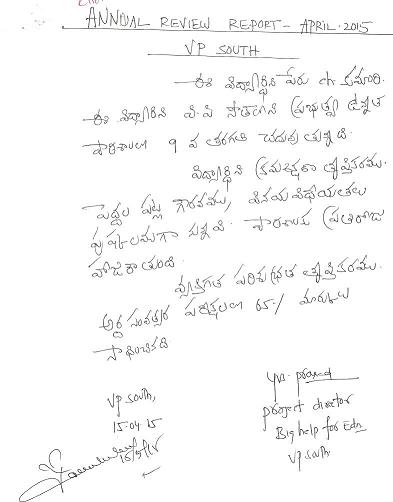 ANNUAL REVIEW REPORT - APRIL-2015
VP SOUTH
ఈ విద్యార్థిని పేరు ch కుమారి.
ఈ విద్యార్థిని వి.పి సౌత్ లోని ప్రభుత్వ ఉన్నత
పాఠశాలలో 9 వ తరగతి చదువుతున్నది.
విద్యార్థిని క్రమశిక్షణా తృప్తికరము.
పెద్దల పట్ల గౌరవము, వినయవిధేయతలు
పుష్కలముగా ఉన్నవి. పాఠశాలకు ప్రతిరోజు
హాజరౌతుంది.
వ్యక్తిగత పరిశుభ్రత తృప్తికరము.
అర్థ సంవత్సర పరీక్షలలో 65% మార్కులు
సాధించినది.
VP South,
15.04.15
project director
Big help for Edn
VP South